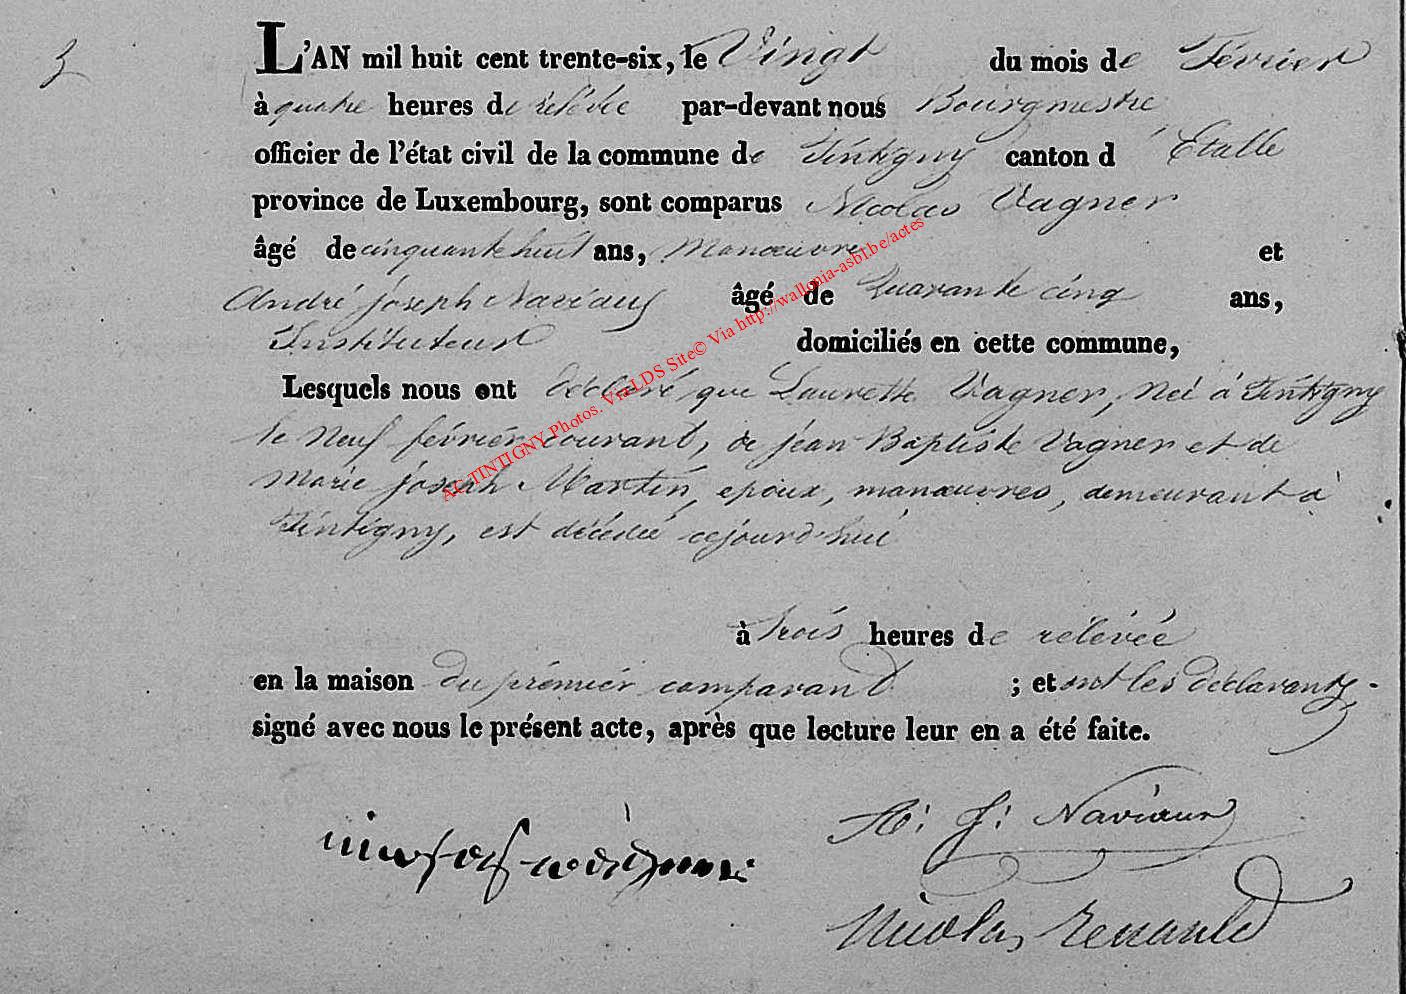 3
L'AN mil huit cent trente-six, le Vingt du mois de Février
à quatre heures de rélévée par-devant nous Bourgmestre
officier de l'état civil de la commune de Tintigny canton d'Etalle
province de Luxembourg, sont comparus Nicolas Vagner
âgé de cinquante huit ans, Manoeuvre et
André joseph Naviaux âgé de Quarante cinq ans,
Instituteur domiciliés en cette commune,
Lesquels nous ont déclaré que Laurette Vagner, Née à Tintigny
le Neuf février courant, de jean Baptiste Vagner et de
Marie joseph Martin, epoux, manoeuvres, demeurant à
Tintigny, est décédée cejourd'hui
à trois heures de rélévée
en la maison du prémiér comparant ; et ont les déclarants
signé avec nous le présent acte, après que lecture leur en a été faite.
A. J. Naviaux
Nicolas Renauld
AC TINTIGNY Photos. Via LDS Site© Via http://wallonia-asbl.be/actes